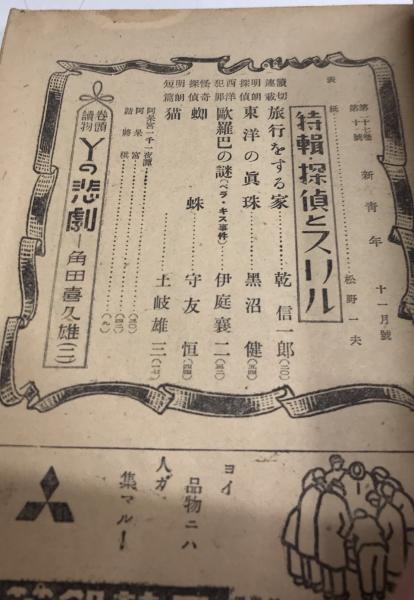 第二十七巻
第十號
新青年
十一月號
表紙……松野一夫
特輯・探偵とスリル
讀切連載
旅行をする家……乾信一郎(二〇)
明朗探偵
東洋の眞珠……黒沼健(五四)
西洋犯罪
歐羅巴の謎(ベラ・キス事件)……伊庭襄二(三二)
怪奇探偵
蜘蛛……守友恒(四四)
明朗短篇
猫……土岐雄三(一七)
阿呆宮一千一夜譚
阿呆宮……(三〇)
詰將棋……(九)
卷頭讀物
Yの悲劇―角田喜久雄(二)
ヨイ
品物ニハ
人ガ
集マルー